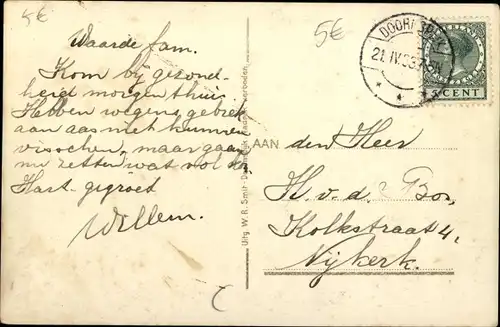 5€
5€
Waarde fam.
Kom bij gezond-
heid morgen thuis
Hebben wegens gebrek
aan aas niet kunnen
visschen, maar gaan
nu zetten wat vol
Hart. gegroet
Willem.
DOORNSPIJK
21.IV.33.7-8N
5 CENT
AAN den Heer
H. v. d. Bos,
Kolkstraat 4,
Nijkerk.
Uitg. W. R. Smit - Doornspijk